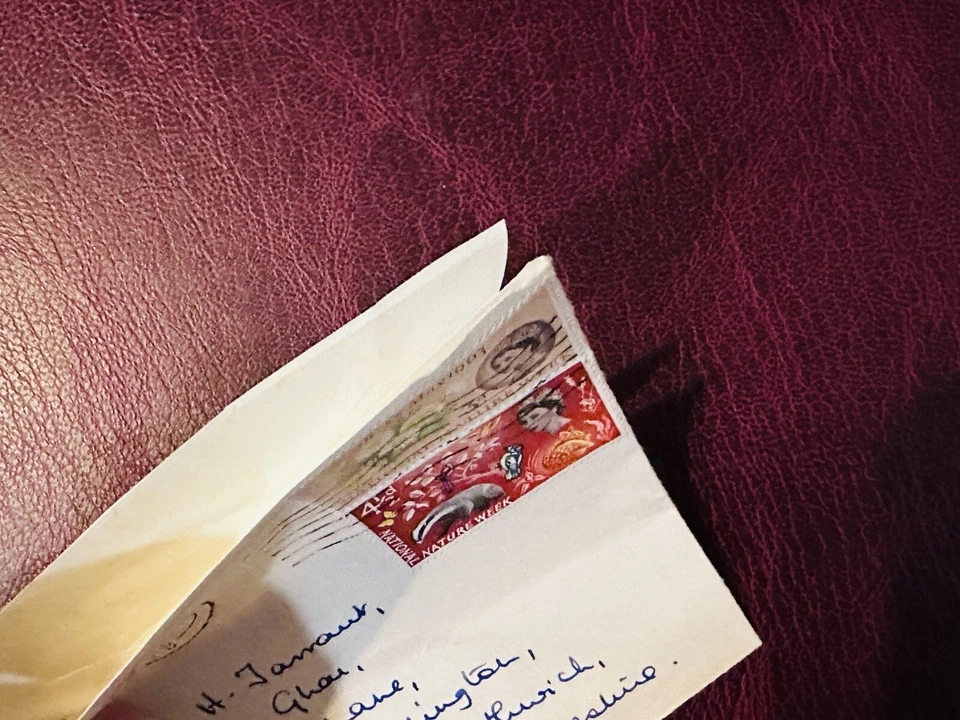 4½D
NATIONAL
NATURE WEEK
H. Tarrant,
Ghat,
ane,
ington,
twich,
eshire.